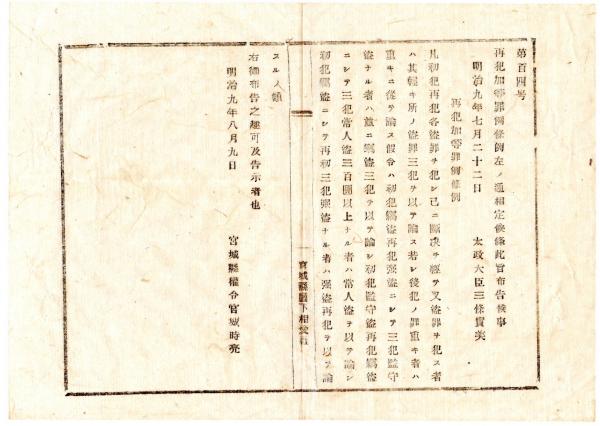 第百四号
再犯加等罪例條例左ノ通相定候條此旨布告候事
明治九年七月二十二日
太政大臣三條實美
再犯加等罪例條例
凡初犯再犯各盜罪ヲ犯シ已ニ斷決ヲ經テ又盜罪ヲ犯ス者
ハ其輕キ所ノ盜罪三犯ヲ以テ論ス若シ後犯ノ罪重キ者ハ
重キニ從テ論ス假令ハ初犯竊盜再犯强盜ニシテ三犯監守
盜ナル者ハ並ニ竊盜三犯ヲ以テ論シ初犯監守盜再犯竊盜
ニシテ三犯常人盜三百圓以上ナル者ハ常人盜ヲ以テ論シ
初犯竊盜ニシテ再初三犯强盜ナル者ハ强盜再犯ヲ以テ論
宮城縣
スルノ類
右御布告之趣可及告示者也
明治九年八月九日
宮城縣權令宮城時亮